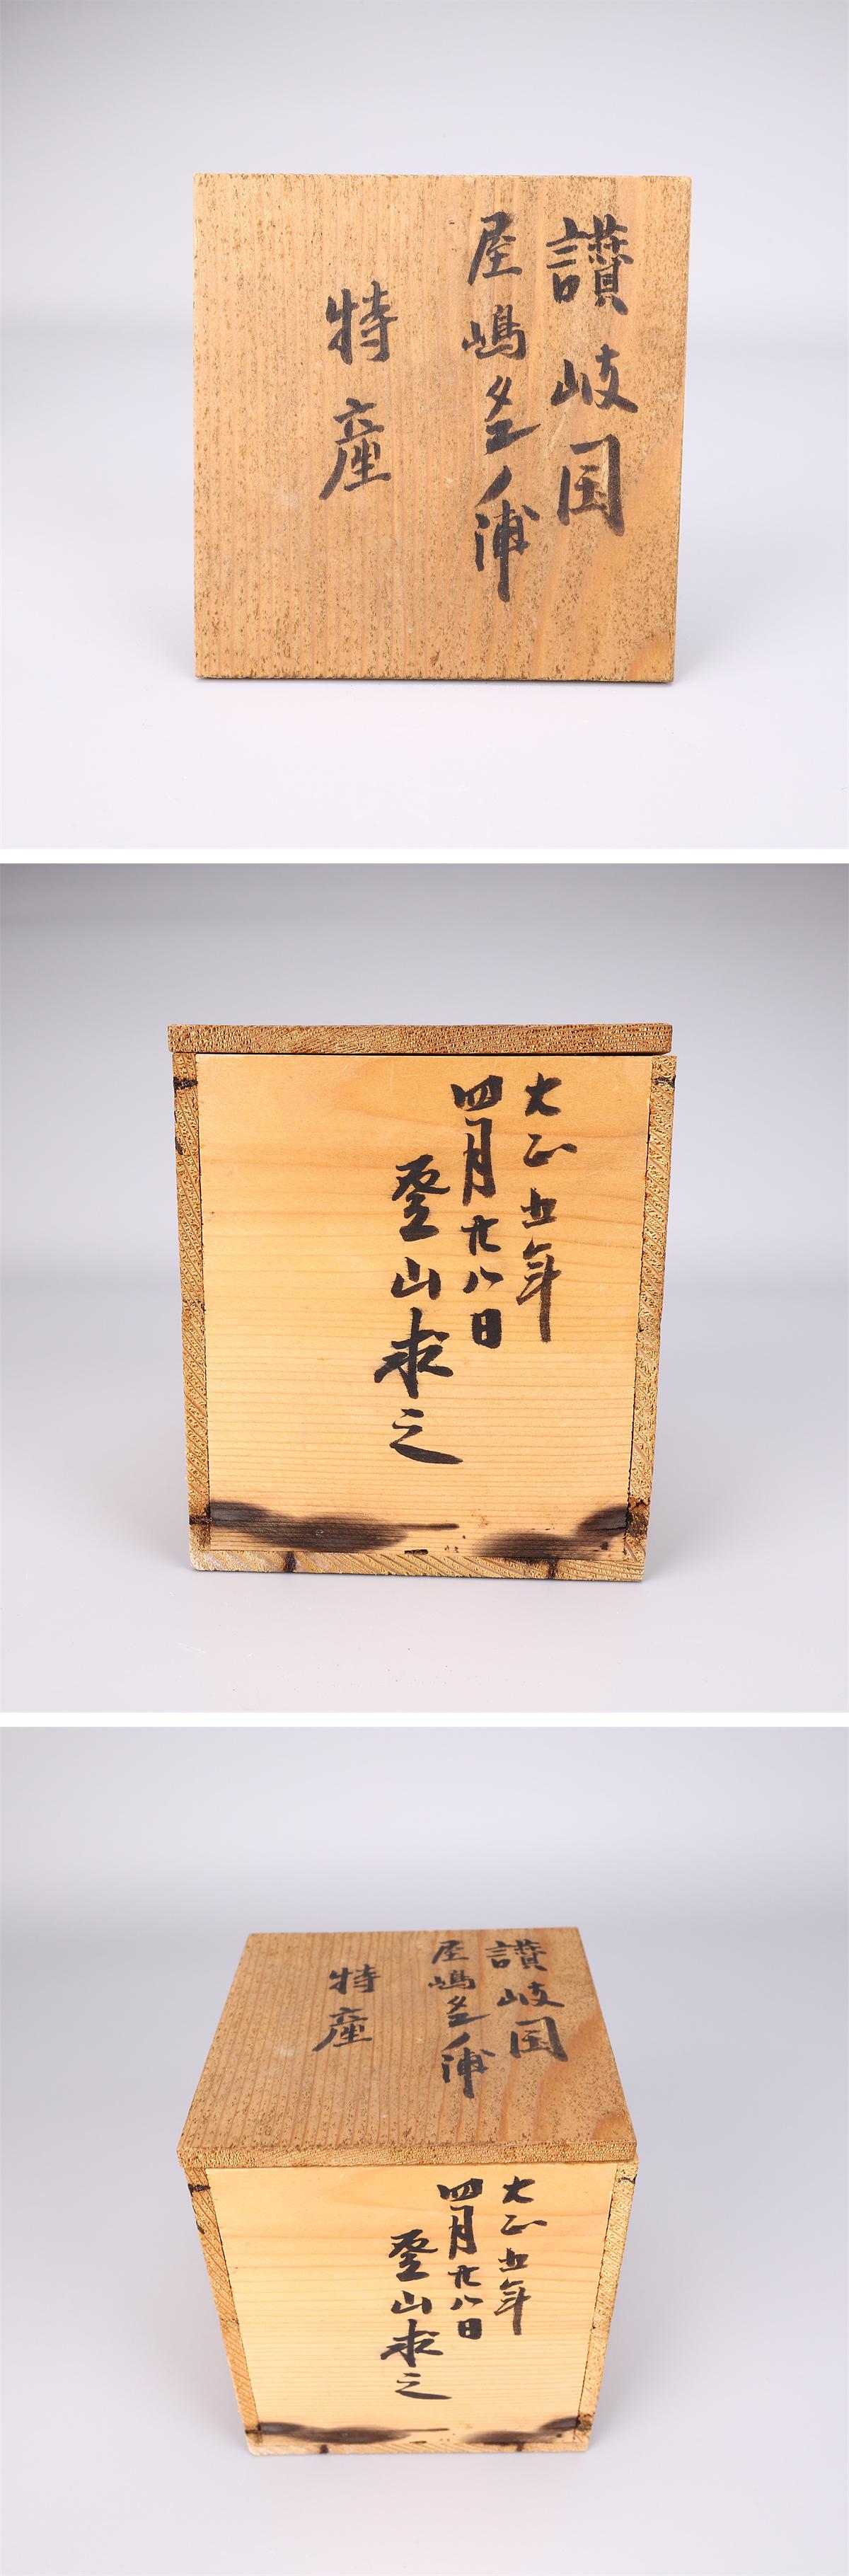 讃岐国
屋嶋ノ浦
特産
大正五年
四月廿八日
登山求之
讃岐国
屋嶋ノ浦
特産
大正五年
四月廿八日
登山求之